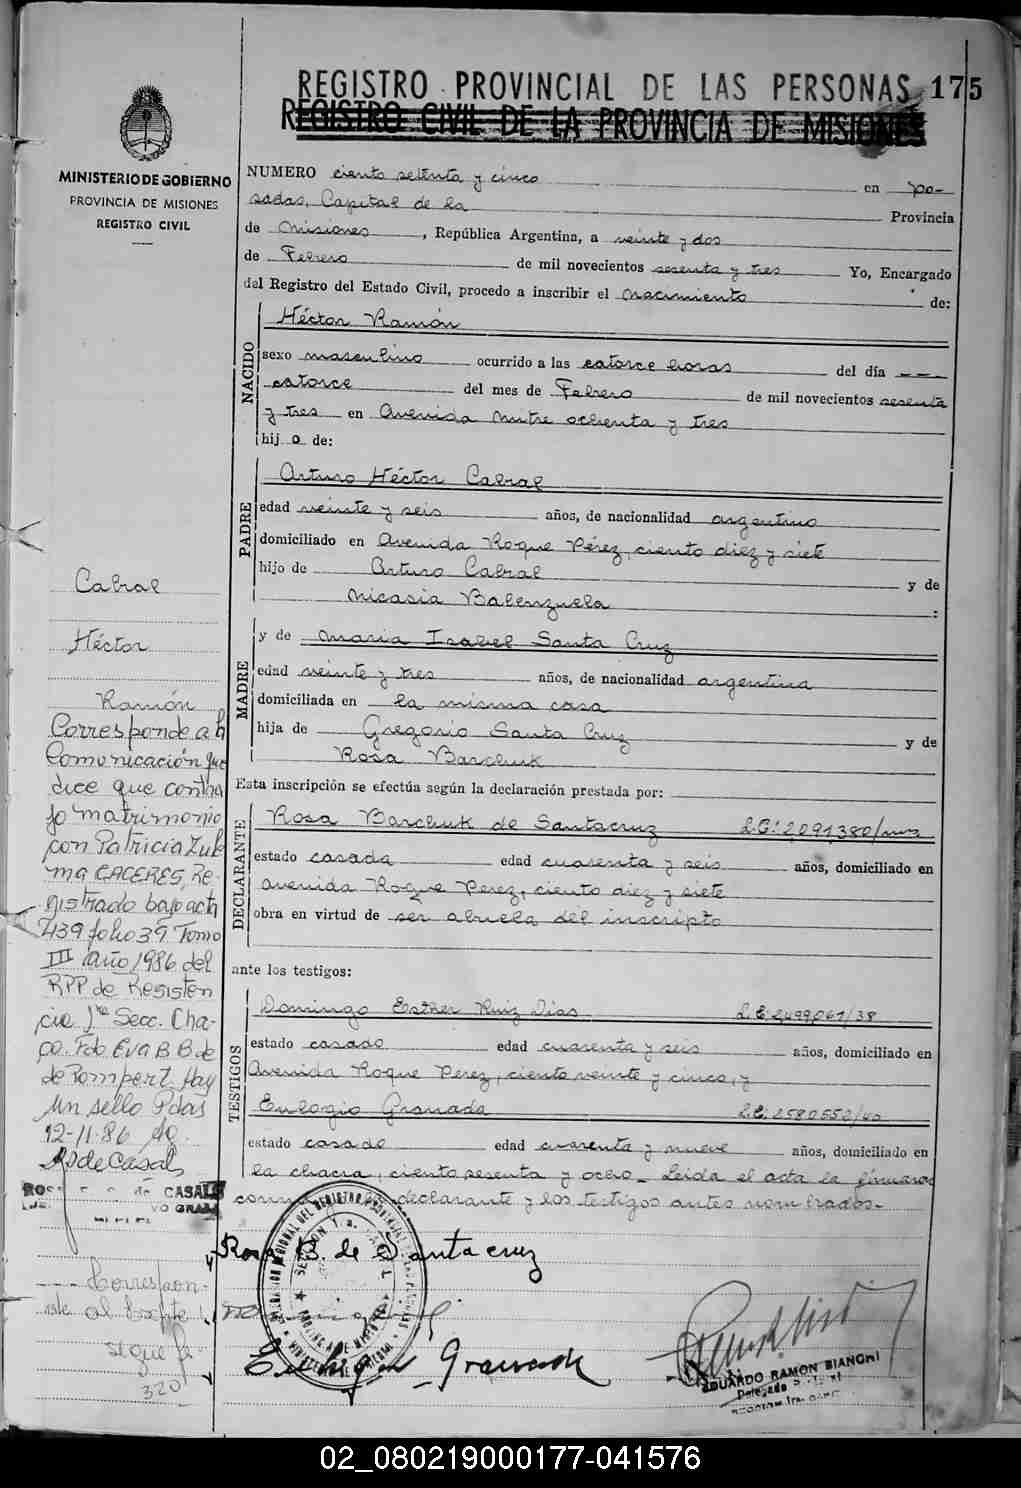 REGISTRO PROVINCIAL DE LAS PERSONAS 175
REGISTRO CIVIL DE LA PROVINCIA DE MISIONES
MINISTERIO DE GOBIERNO
PROVINCIA DE MISIONES
REGISTRO CIVIL
NUMERO ciento setenta y cinco en Po-
sadas, Capital de la Provincia
de Misiones, República Argentina, a veinte y dos
de Febrero de mil novecientos sesenta y tres Yo, Encargado
del Registro del Estado Civil, procedo a inscribir el nacimiento de:
NACIDO
Héctor Ramón
sexo masculino ocurrido a las catorce horas del día ---
catorce del mes de Febrero de mil novecientos sesenta
y tres en Avenida Mitre ochenta y tres
hijo de:
PADRE
Arturo Héctor Cabral
edad veinte y seis años, de nacionalidad argentino
domiciliado en Avenida Roque Pérez, ciento diez y siete
hijo de Arturo Cabral y de
Nicasia Balenzuela :
MADRE
y de Maria Isabel Santa Cruz
edad veinte y tres años, de nacionalidad argentina
domiciliada en la misma casa
hija de Gregorio Santa Cruz y de
Rosa Barchuk
Esta inscripción se efectúa según la declaración prestada por:
DECLARANTE
Rosa Barchuk de Santacruz L.C: 2,091,380/
estado casada edad cuarenta y seis años, domiciliado en
Avenida Roque Perez, ciento diez y siete
obra en virtud de ser abuela del inscripto
ante los testigos:
TESTIGOS
Domingo Esther Ruiz Dias L.E: 2499,061/38
estado casado edad cuarenta y seis años, domiciliado en
Avenida Roque Perez, ciento veinte y cinco, y
Eulogio Granada L.E: 2580552/
estado casado edad cuarenta y nueve años, domiciliado en
la chacra, ciento sesenta y ocho_ Leida el acta la firmaron
declarante y los testigos antes nombrados.-
Rosa B. de Santacruz
Granada
EDUARDO RAMON BIANCHI
Delegado
Cabral
Héctor
Ramón
Corresponde a la
Comunicación que
dice que contra
jo matrimonio
con Patricia Zul
ma CACERES, Re-
gistrado bajo acta
439 folio 39 Tomo
III año 1986 del
RPP de Resisten
cia 1ra Secc. Cha-
co. Fdo. Eva B B de
de Pompert. Hay
un sello Pdas
12-11-86
de Casals
CASALS
Correspon-
al
sigue f.
320
02_080219000177-041576